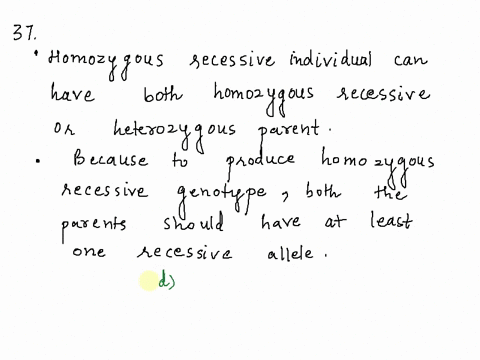 37.
• Homozygous recessive individual can
have both homozygous recessive
or heterozygous parent.
• Because to produce homozygous
recessive genotype, both the
parents should have at least
one recessive allele.
d)